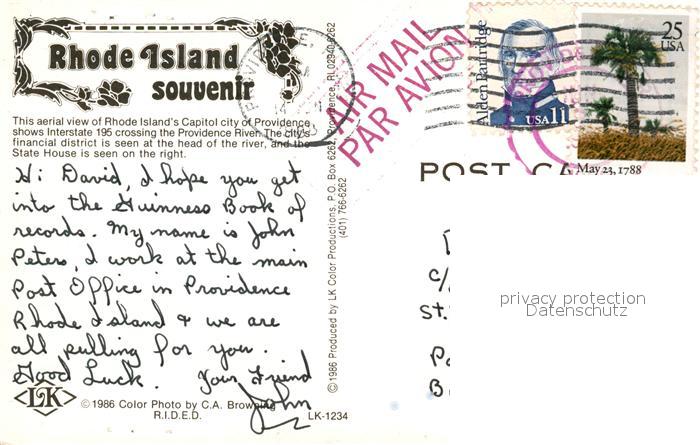 Rhode Island
souvenir
This aerial view of Rhode Island's Capitol city of Providence,
shows Interstate 195 crossing the Providence River. The city's
financial district is seen at the head of the river, and the
State House is seen on the right.
Hi David, I hope you get
into the Guinness Book of
records. My name is John
Peters, I work at the main
Post Office in Providence
Rhode Island & we are
all pulling for you.
Good Luck. Your Friend
John
LK
© 1986 Color Photo by C.A. Browning
R.I.D.E.D.
LK-1234
© 1986 Produced by LK Color Productions, P.O. Box 6262, Providence, RI. 02940-6262
(401) 766-6262
AIR MAIL
PAR AVION
Alden Partridge
USA 11
25
USA
May 23, 1788
POST CA
c/
St.
Po
B
privacy protection
Datenschutz